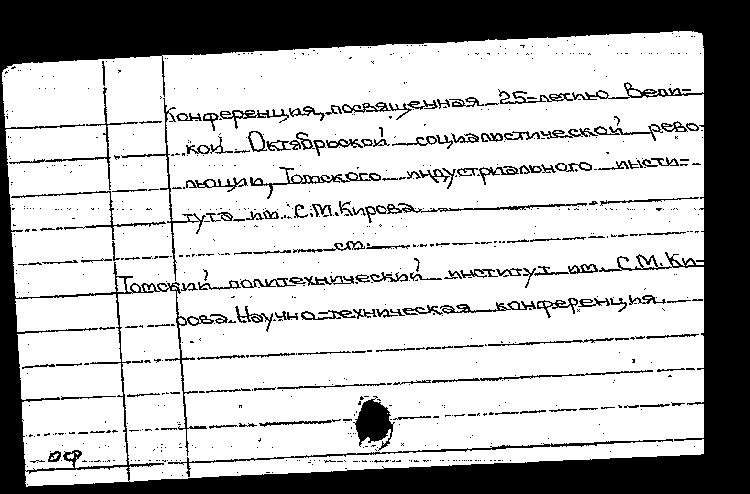 Конференция, посвященная 25-летию Вели-
кой Октябрьской социалистической рево-
люции, Томского индустриального инсти-
тута им. С.М.Кирова
см.
Томский политехнический институт им. С.М.Ки-
рова. Научно-техническая конференция.
ОФ